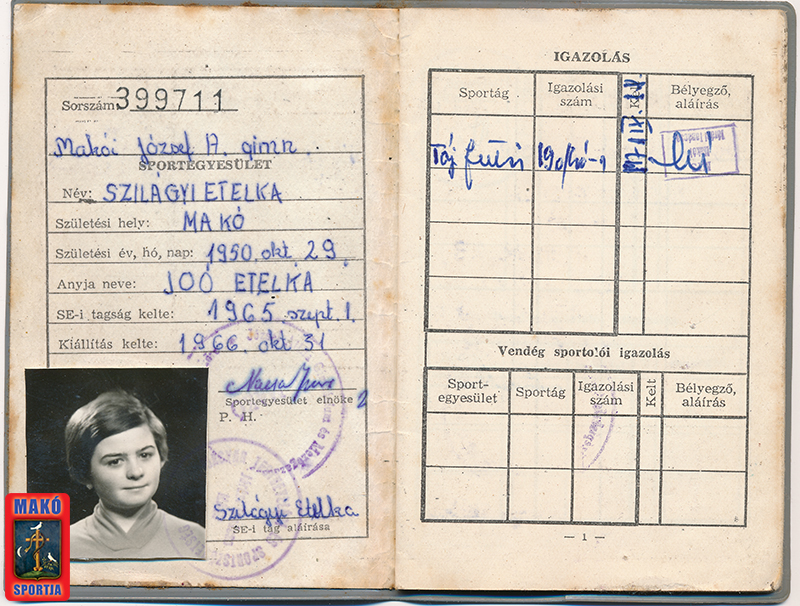 Sorszám: 399711
Makói József A. gimn
SPORTEGYESÜLET
Név: SZILÁGYI ETELKA
Születési hely: MAKÓ
Születési év, hó, nap: 1950. okt. 29.
Anyja neve: JOÓ ETELKA
SE-i tagság kelte: 1965 szept. 1.
Kiállítás kelte: 1966. okt 31
Sportegyesület elnöke
P. H.
Szilágyi Etelka
SE-i tag aláírása
MAKÓ
SPORTJA
IGAZOLÁS
Sportág
Igazolási szám
Kelt
Bélyegző, aláírás
Táj futó
Vendég sportolói igazolás
Sport-egyesület
Sportág
Igazolási szám
Kelt
Bélyegző, aláírás
— 1 —